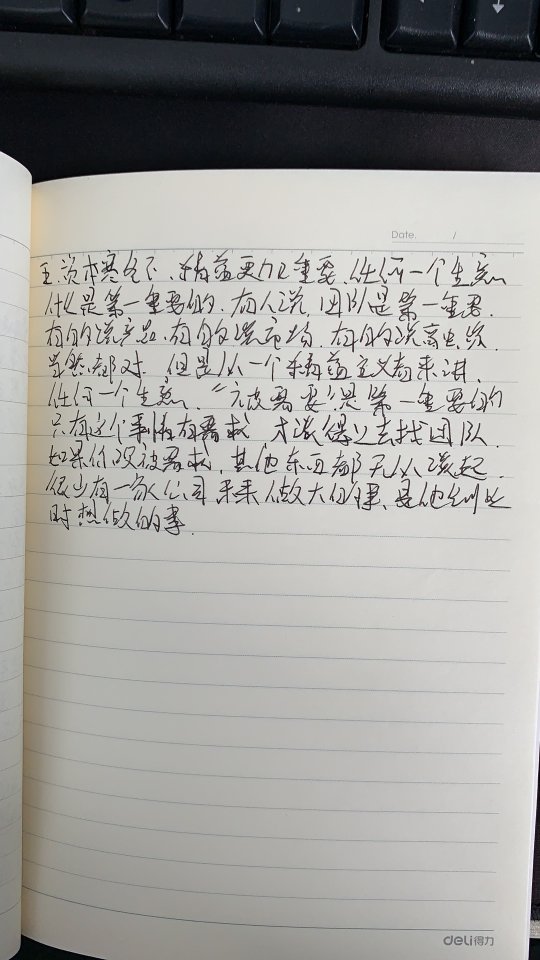 Date. /
在资本寒冬下,精益更加重要,任何一个生意
什么是第一重要的,有人说,团队是第一重要,
有的说产品,有的说市场,有的说商业
当然都对,但是从一个精益主义者来讲,
任何一个生意,“被需要”是第一重要的
只有这个事情有需求,才谈得上去找团队
如果你没被需求,其他东西都无从谈起.
很少有一家公司未来做大的事,是他创业
时想做的事.
deli得力